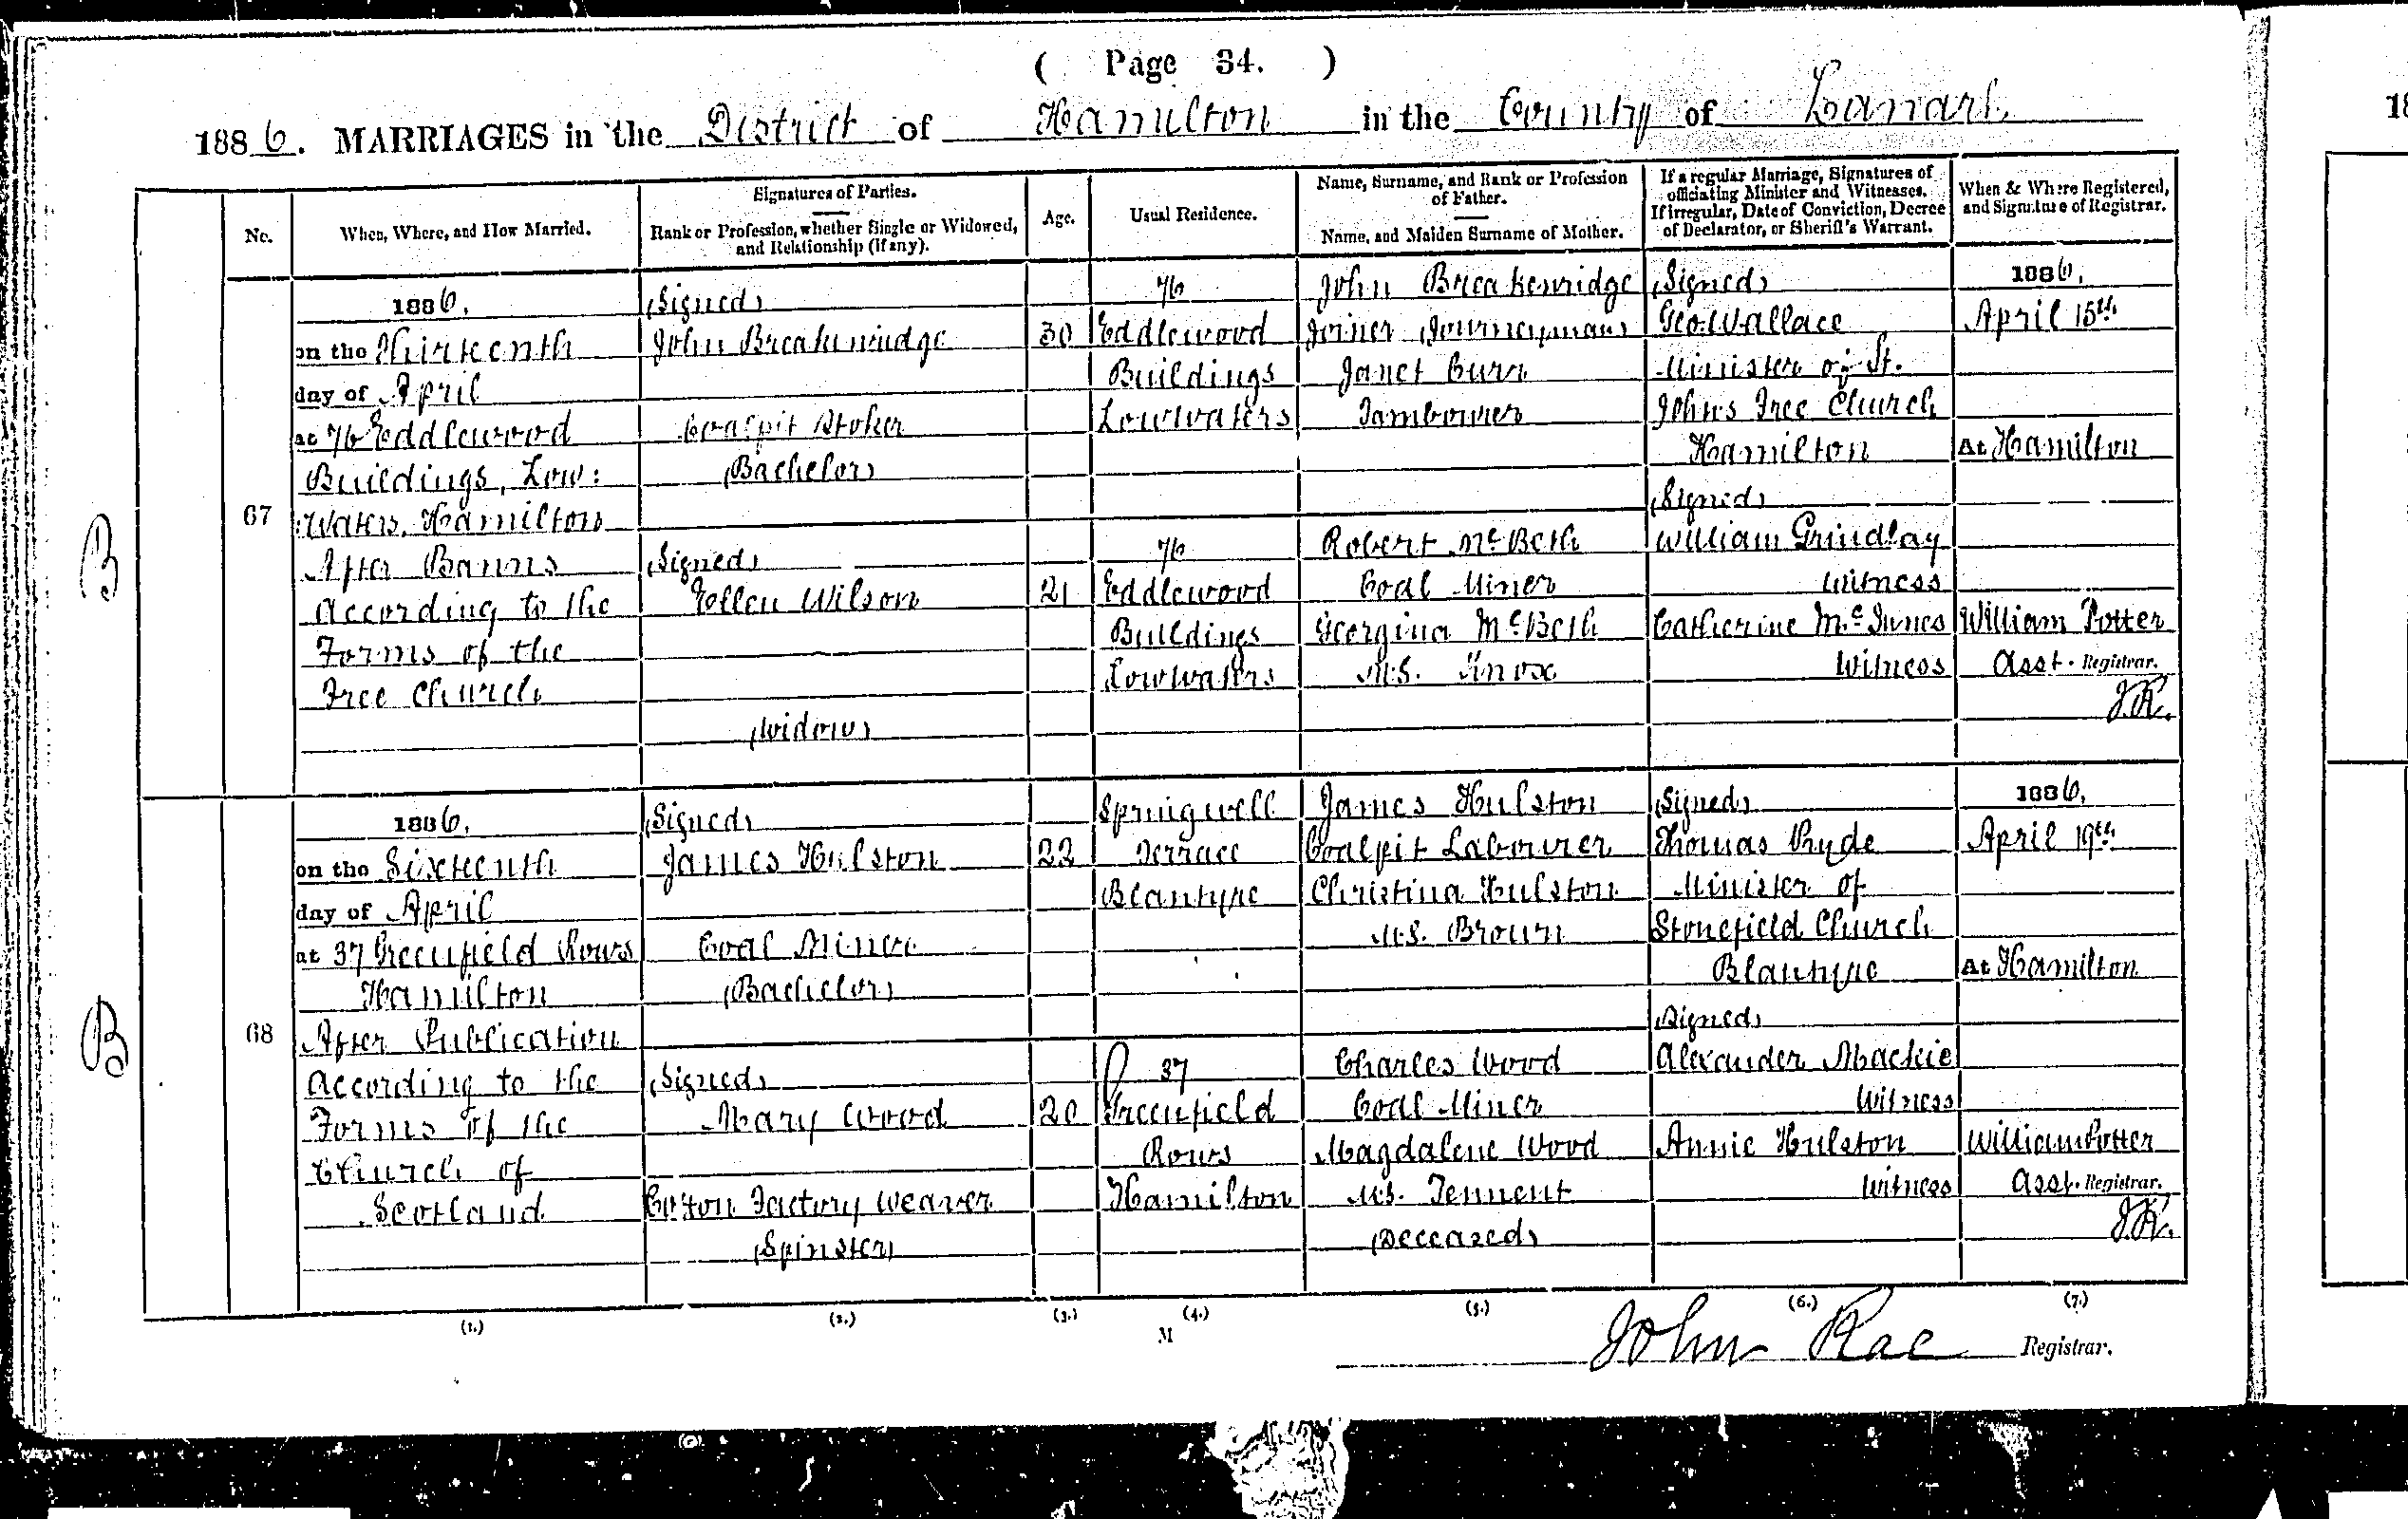 ( Page 34. )
1886. MARRIAGES in the District of Hamilton in the County of Lanark
No.
When, Where, and How Married.
Signatures of Parties.
Rank or Profession, whether Single or Widowed,
and Relationship (if any).
Age.
Usual Residence.
Name, Surname, and Rank or Profession
of Father.
Name, and Maiden Surname of Mother.
If a regular Marriage, Signatures of
officiating Minister and Witnesses.
If irregular, Date of Conviction, Decree
of Declarator, or Sheriff's Warrant.
When & Where Registered,
and Signature of Registrar.
67
1886,
on the Thirteenth
day of April
at 76 Eddlewood
Buildings, Low:
:Waters, Hamilton
After Banns
According to the
Forms of the
Free Church
(Signed)
John Breakenridge
Coalpit Stoker
(Bachelor)
(Signed)
Ellen Wilson
(Widow)
30
21
76
Eddlewood
Buildings
Lowwaters
76
Eddlewood
Buildings
Lowwaters
John Breakenridge
Joiner (Journeyman)
Janet Curr
Tambourer
Robert McBeth
Coal Miner
Georgina McBeth
M.S. Knox
(Signed)
Geo. Wallace
Minister of St.
Johns Free Church
Hamilton
(Signed)
William Grindlay
Witness
Catherine McInnes
Witness
1886,
April 15th
At Hamilton
William Potter
Asst. Registrar.
J.R.
68
1886,
on the Sixteenth
day of April
at 37 Greenfield Rows
Hamilton
After Publication
According to the
Forms of the
Church of
Scotland
(Signed)
James Hulston
Coal Miner
(Bachelor)
(Signed)
Mary Wood
Cotton Factory Weaver
(Spinster)
22
20
Springwell
Terrace
Blantyre
37
Greenfield
Rows
Hamilton
James Hulston
Coalpit Labourer
Christina Hulston
M.S. Brown
Charles Wood
Coal Miner
Magdalene Wood
M.S. Tennent
(Deceased)
(Signed)
Thomas Pryde
Minister of
Stonefield Church
Blantyre
(Signed)
Alexander Mackie
Witness
Annie Hulston
Witness
1886,
April 19th
At Hamilton
William Potter
Asst. Registrar.
J.R.
B
B
(1.) (2.) (3.) (4.) (5.) (6.) (7.)
M
John Rae Registrar.
18